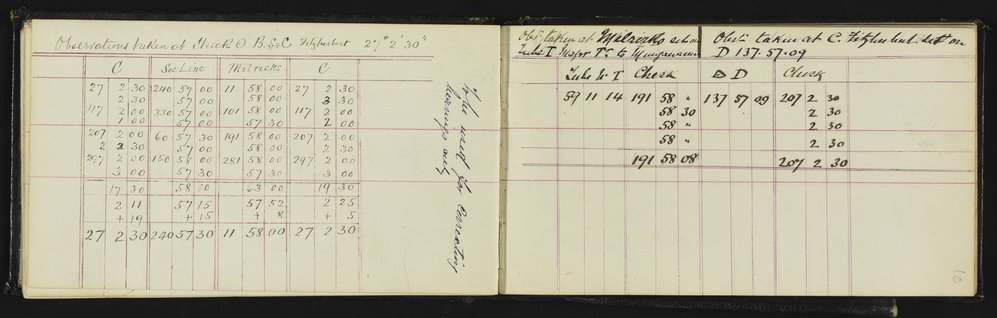 Observations taken at Huck O B.S=C Fitzherbert 27° 2' 30"
C Sec Line Milricks C
27 2 30 240 57 00 11 58 00 27 2 30
2 30 57 00 58 00 3 30
117 2 00 330 57 00 101 58 00 117 2 00
1 00 57 00 57 30 2 00
207 2 00 60 57 30 191 58 00 207 2 00
2 2 30 57 00 58 00 2 30
297 2 00 150 58 00 281 58 00 297 2 00
3 00 57 30 57 30 3 00
17 30 58 00 63 00 19 30
2 11 57 15 57 52 2 25
+ 19 + 15 + 8 + 5
27 2 30 240 57 30 11 58 00 27 2 30
To be used for Correcting
bearings only
Obsn. taken at Milricks
Tube I
Obsn. taken at C. Fitzherbert
D 137.57.09
Tube to I Check D Check
59 11 14 191 58 " 137 57 09 207 2 30
58 30 2 30
58 " 2 30
58 " 2 30
191 58 08 207 2 30
10